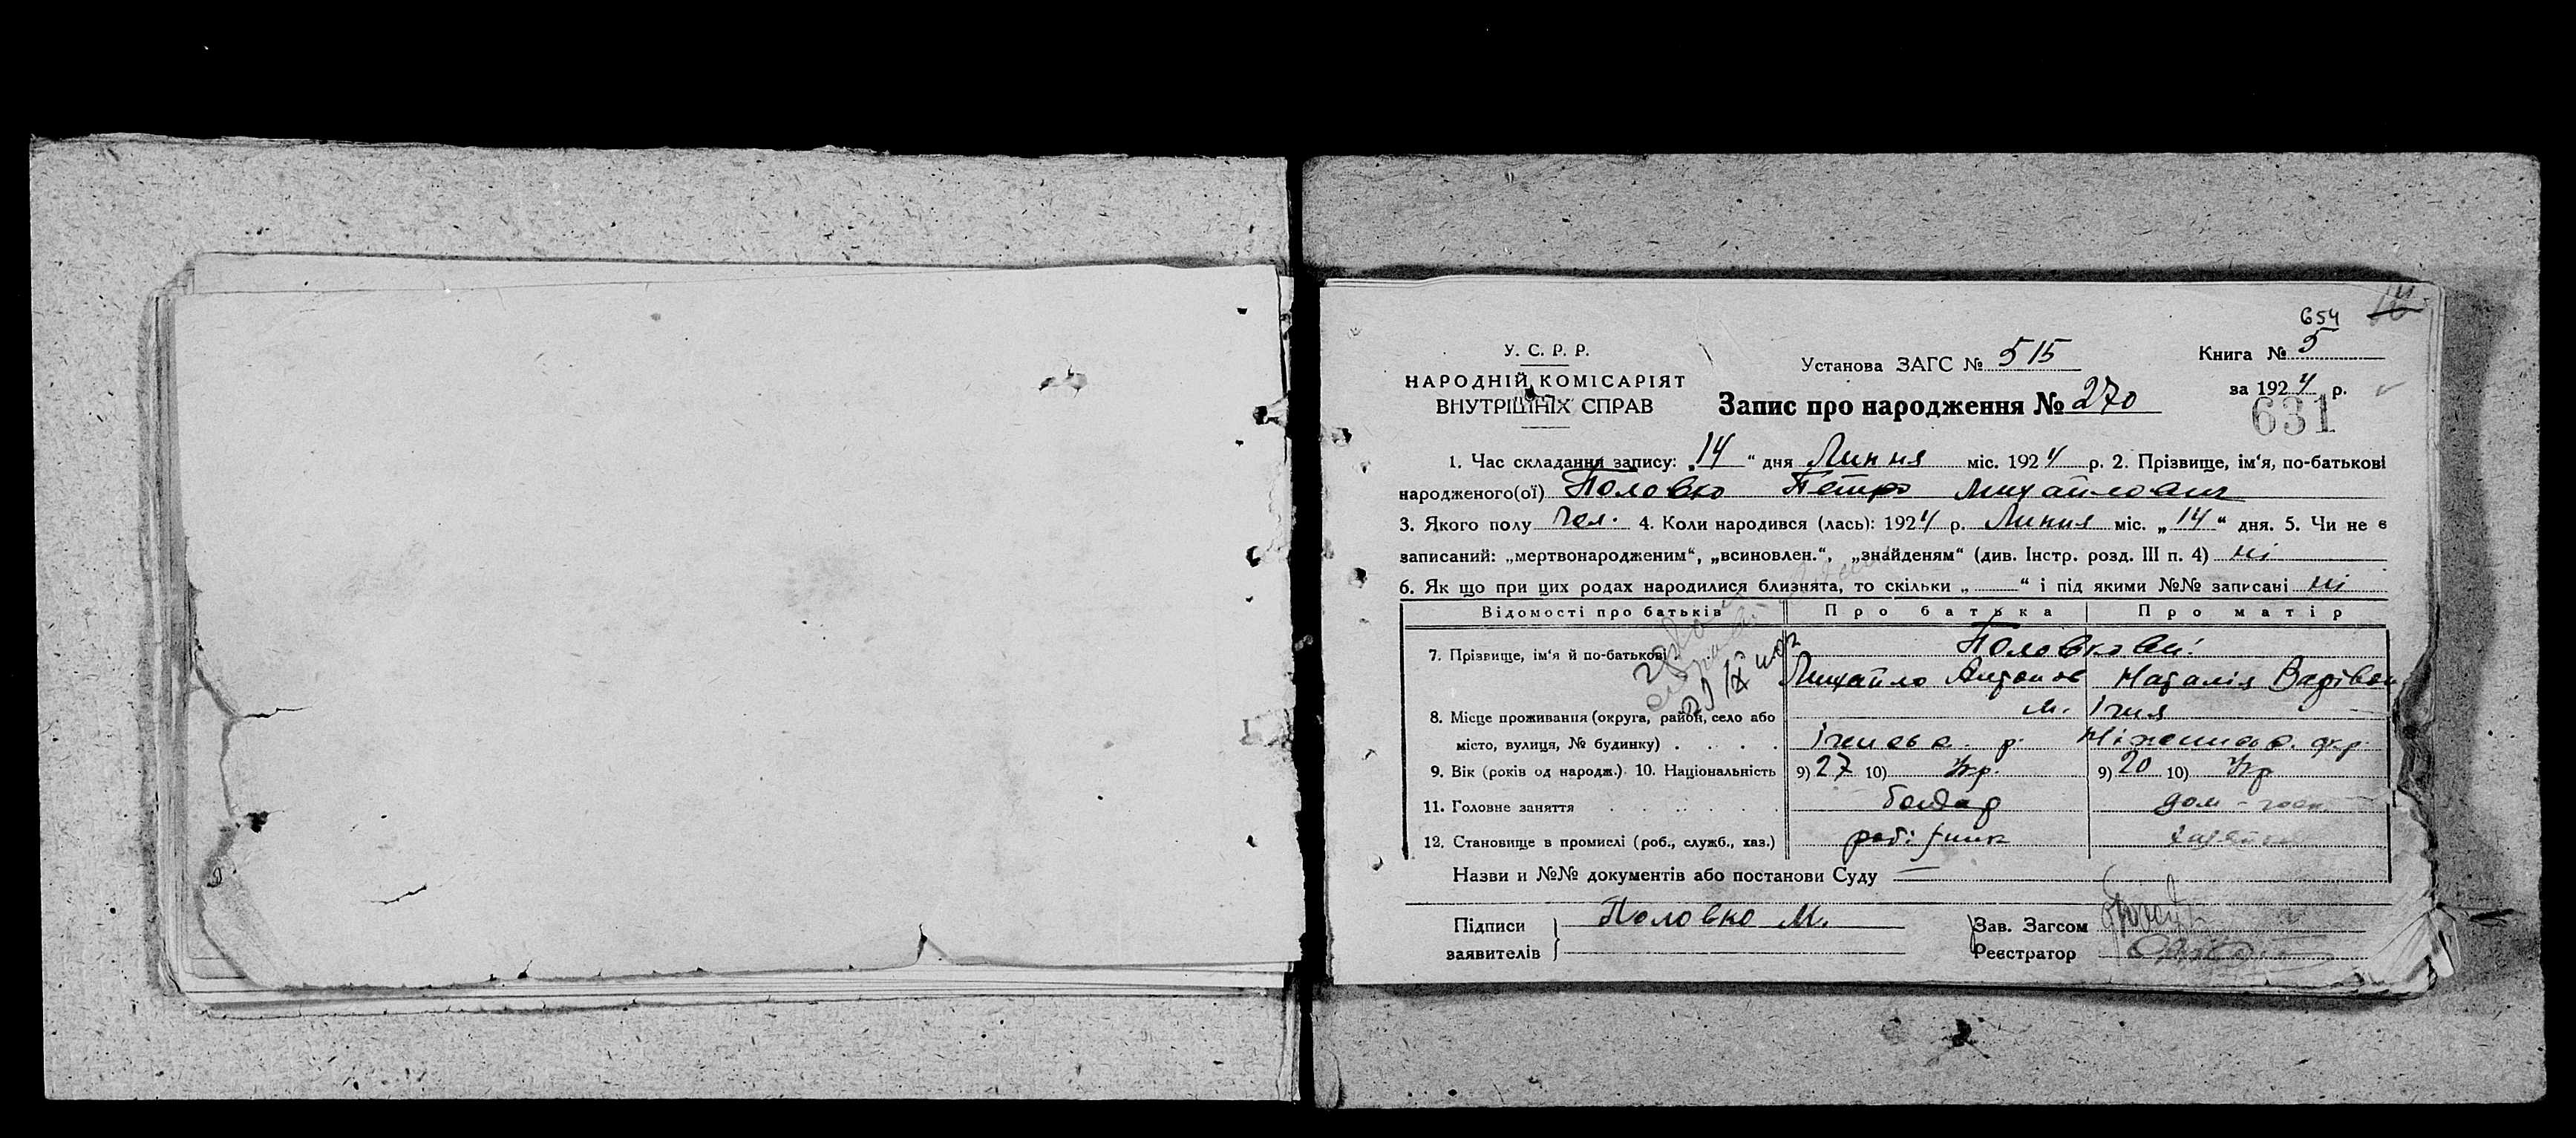 654
У. С. Р. Р.
НАРОДНІЙ КОМІСАРІЯТ
ВНУТРІШНІХ СПРАВ
Установа ЗАГС № 515
Запис про народження № 270
Книга № 5
за 1924 р.
631
1. Час складання запису: „14“ дня Липня міс. 1924 р. 2. Прізвище, ім‘я, по-батькові
народженого(ої) Половко Петро Михайлович
3. Якого полу чол. 4. Коли народився (лась): 1924 р. Липня міс. „14“ дня. 5. Чи не є
записаний: „мертвонародженим“, „всиновлен.“, „знайденям“ (див. Інстр. розд. III п. 4) ні
6. Як що при цих родах народилися близнята, то скільки „ “ і під якими №№ записані ні
Відомості про батьків Про батька Про матір
7. Прізвище, ім‘я й по-батькові Половкови
Михайло Антонов Наталія
8. Місце проживання (округа, район, село або м. Ічня
місто, вулиця, № будинку) . . . . р. окр.
9. Вік (років од народж.) 10. Національність 9) 27 10) Укр. 9) 20 10) Укр
11. Головне заняття дом-
12. Становище в промислі (роб., служб., хаз.)
Назви и №№ документів або постанови Суду —
Підписи Половко М.
заявителів
Зав. Загсом
Реєстратор